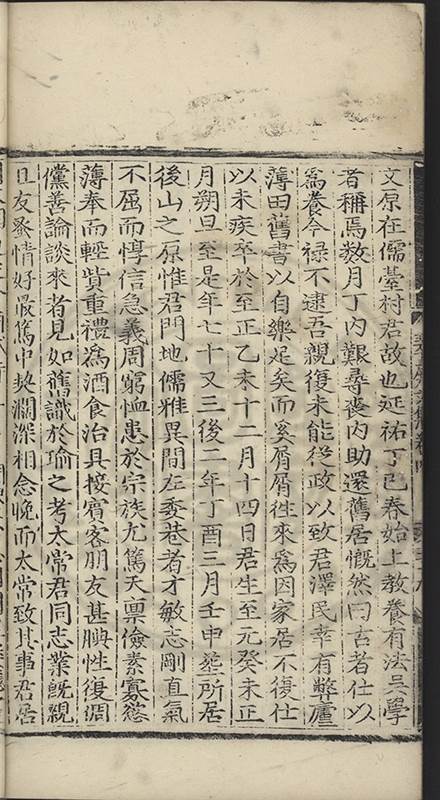 文原在儒臺村君故也延祐丁巳春始上教養有法吳學
者稱焉數月丁內艱尋喪內助還舊居慨然曰古者仕以
爲養今祿不逮吾親復未能從政以致君澤民幸有弊廬
薄田舊書以自樂足矣而奚屑屑徃來爲因家居不復仕
以未疾卒於至正乙未十二月十四日君生至元癸未正
月朔旦至是年七十又三後二年丁酉三月壬申塟所居
後山之原惟君門地儒雅異閭左委巷者才敏志剛直氣
不屈而惇信急義周窮恤患於宗族尤篤天禀儉素寡慾
薄奉而輕貲重禮爲酒食治具接賓客朋友甚腆性復倜
儻善論談來者見如舊識於瑜之考太常君同志業旣親
且友爰情好最篤中契濶深相念晚而太常致其事君居